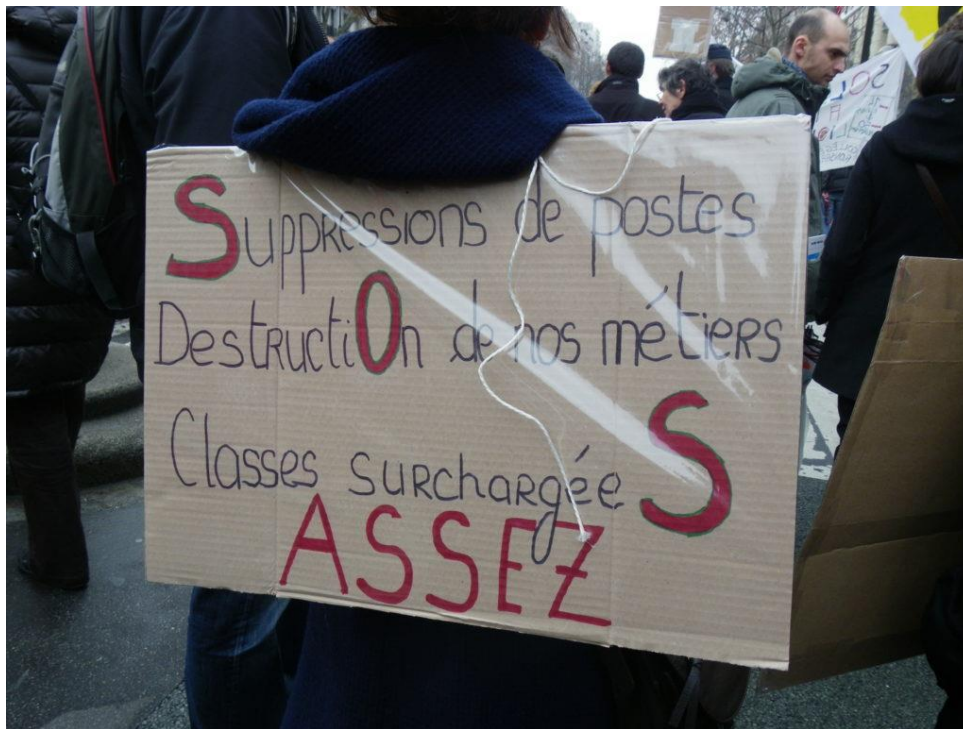 Suppressions de postes
Destruction de nos métiers
Classes surchargées
ASSEZ